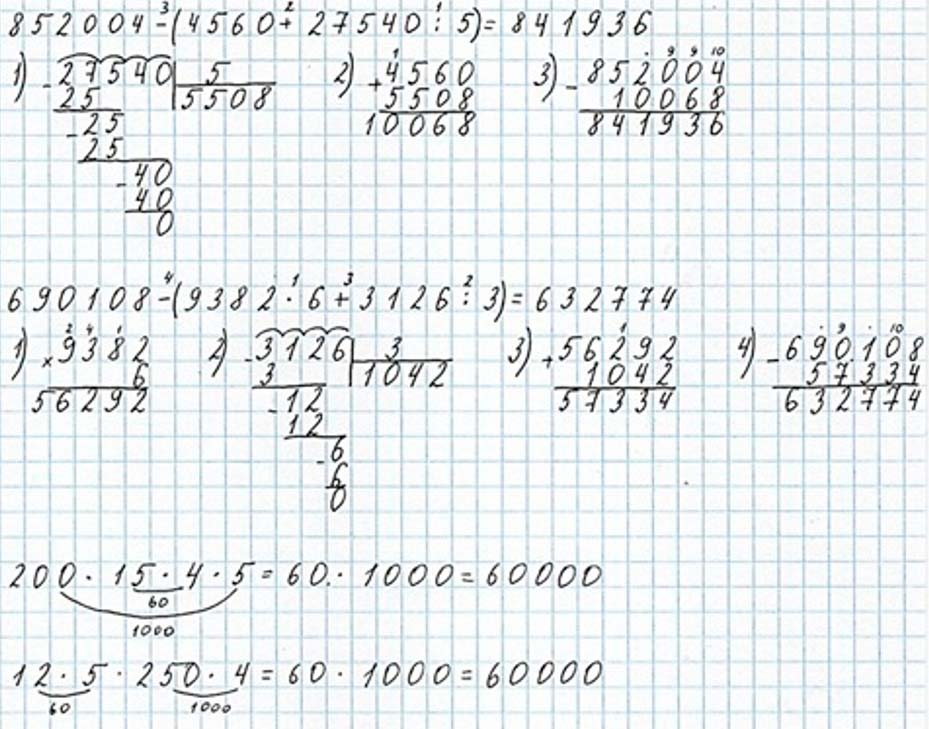 852004-(4560+27540:5)=841936
1) 27540 | 5
25 | 5508
-25
25
-40
40
0
2) +4560
5508
10068
3) -852004
10068
841936
690108-(9382·6+3126:3)=632774
1) ×9382
6
56292
2) -3126 | 3
3 | 1042
-12
12
-6
6
0
3) +56292
1042
57334
4) -690108
57334
632774
200·15·4·5=60·1000=60000
60
1000
12·5·250·4=60·1000=60000
60 1000